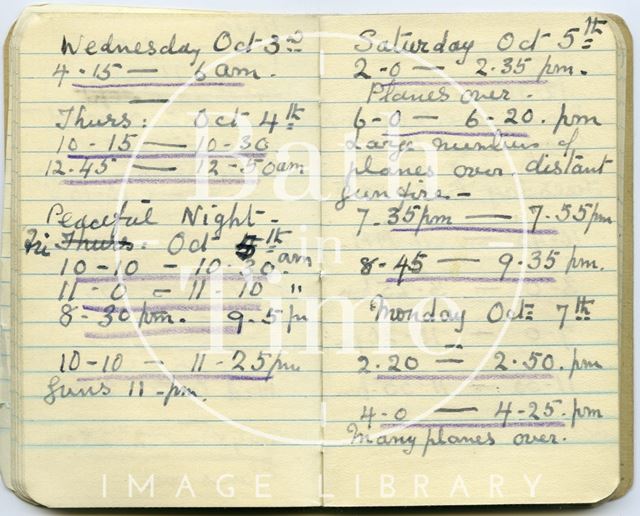 Wednesday Oct 3rd
4-15 — 6 am.
Thurs: Oct 4th
10-15 — 10-30
12-45 — 12-50am
Peaceful Night -
Fri Thurs: Oct 5th
10-10 - 10-30 am
11-0 - 11-10 "
8-30 pm. 9.5 pm
10-10 — 11-25pm
Guns 11-pm.
Saturday Oct 5th
2-0 — 2.35 pm.
Planes over.
6-0 — 6-20. pm
Large numbers of
planes over, distant
gunfire -
7.35pm — 7.55pm
8-45 — 9.35 pm.
Monday Oct 7th
2.20 — 2.50. pm
4-0 — 4-25. pm
Many planes over.
Bath
in
Time
IMAGE LIBRARY